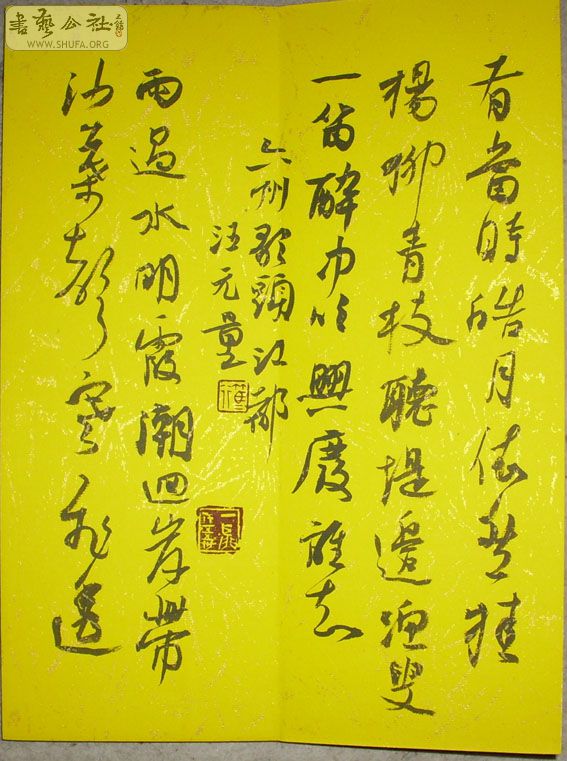 書藝公社
WWW.SHUFA.ORG
有當時皓月依然掛
楊柳青枝聽堤邊漁叟
一笛醉中吹興廢誰知
六州歌頭江都
汪元量
雨過水明霞潮迴岸帶
沙葉聲寒飛透